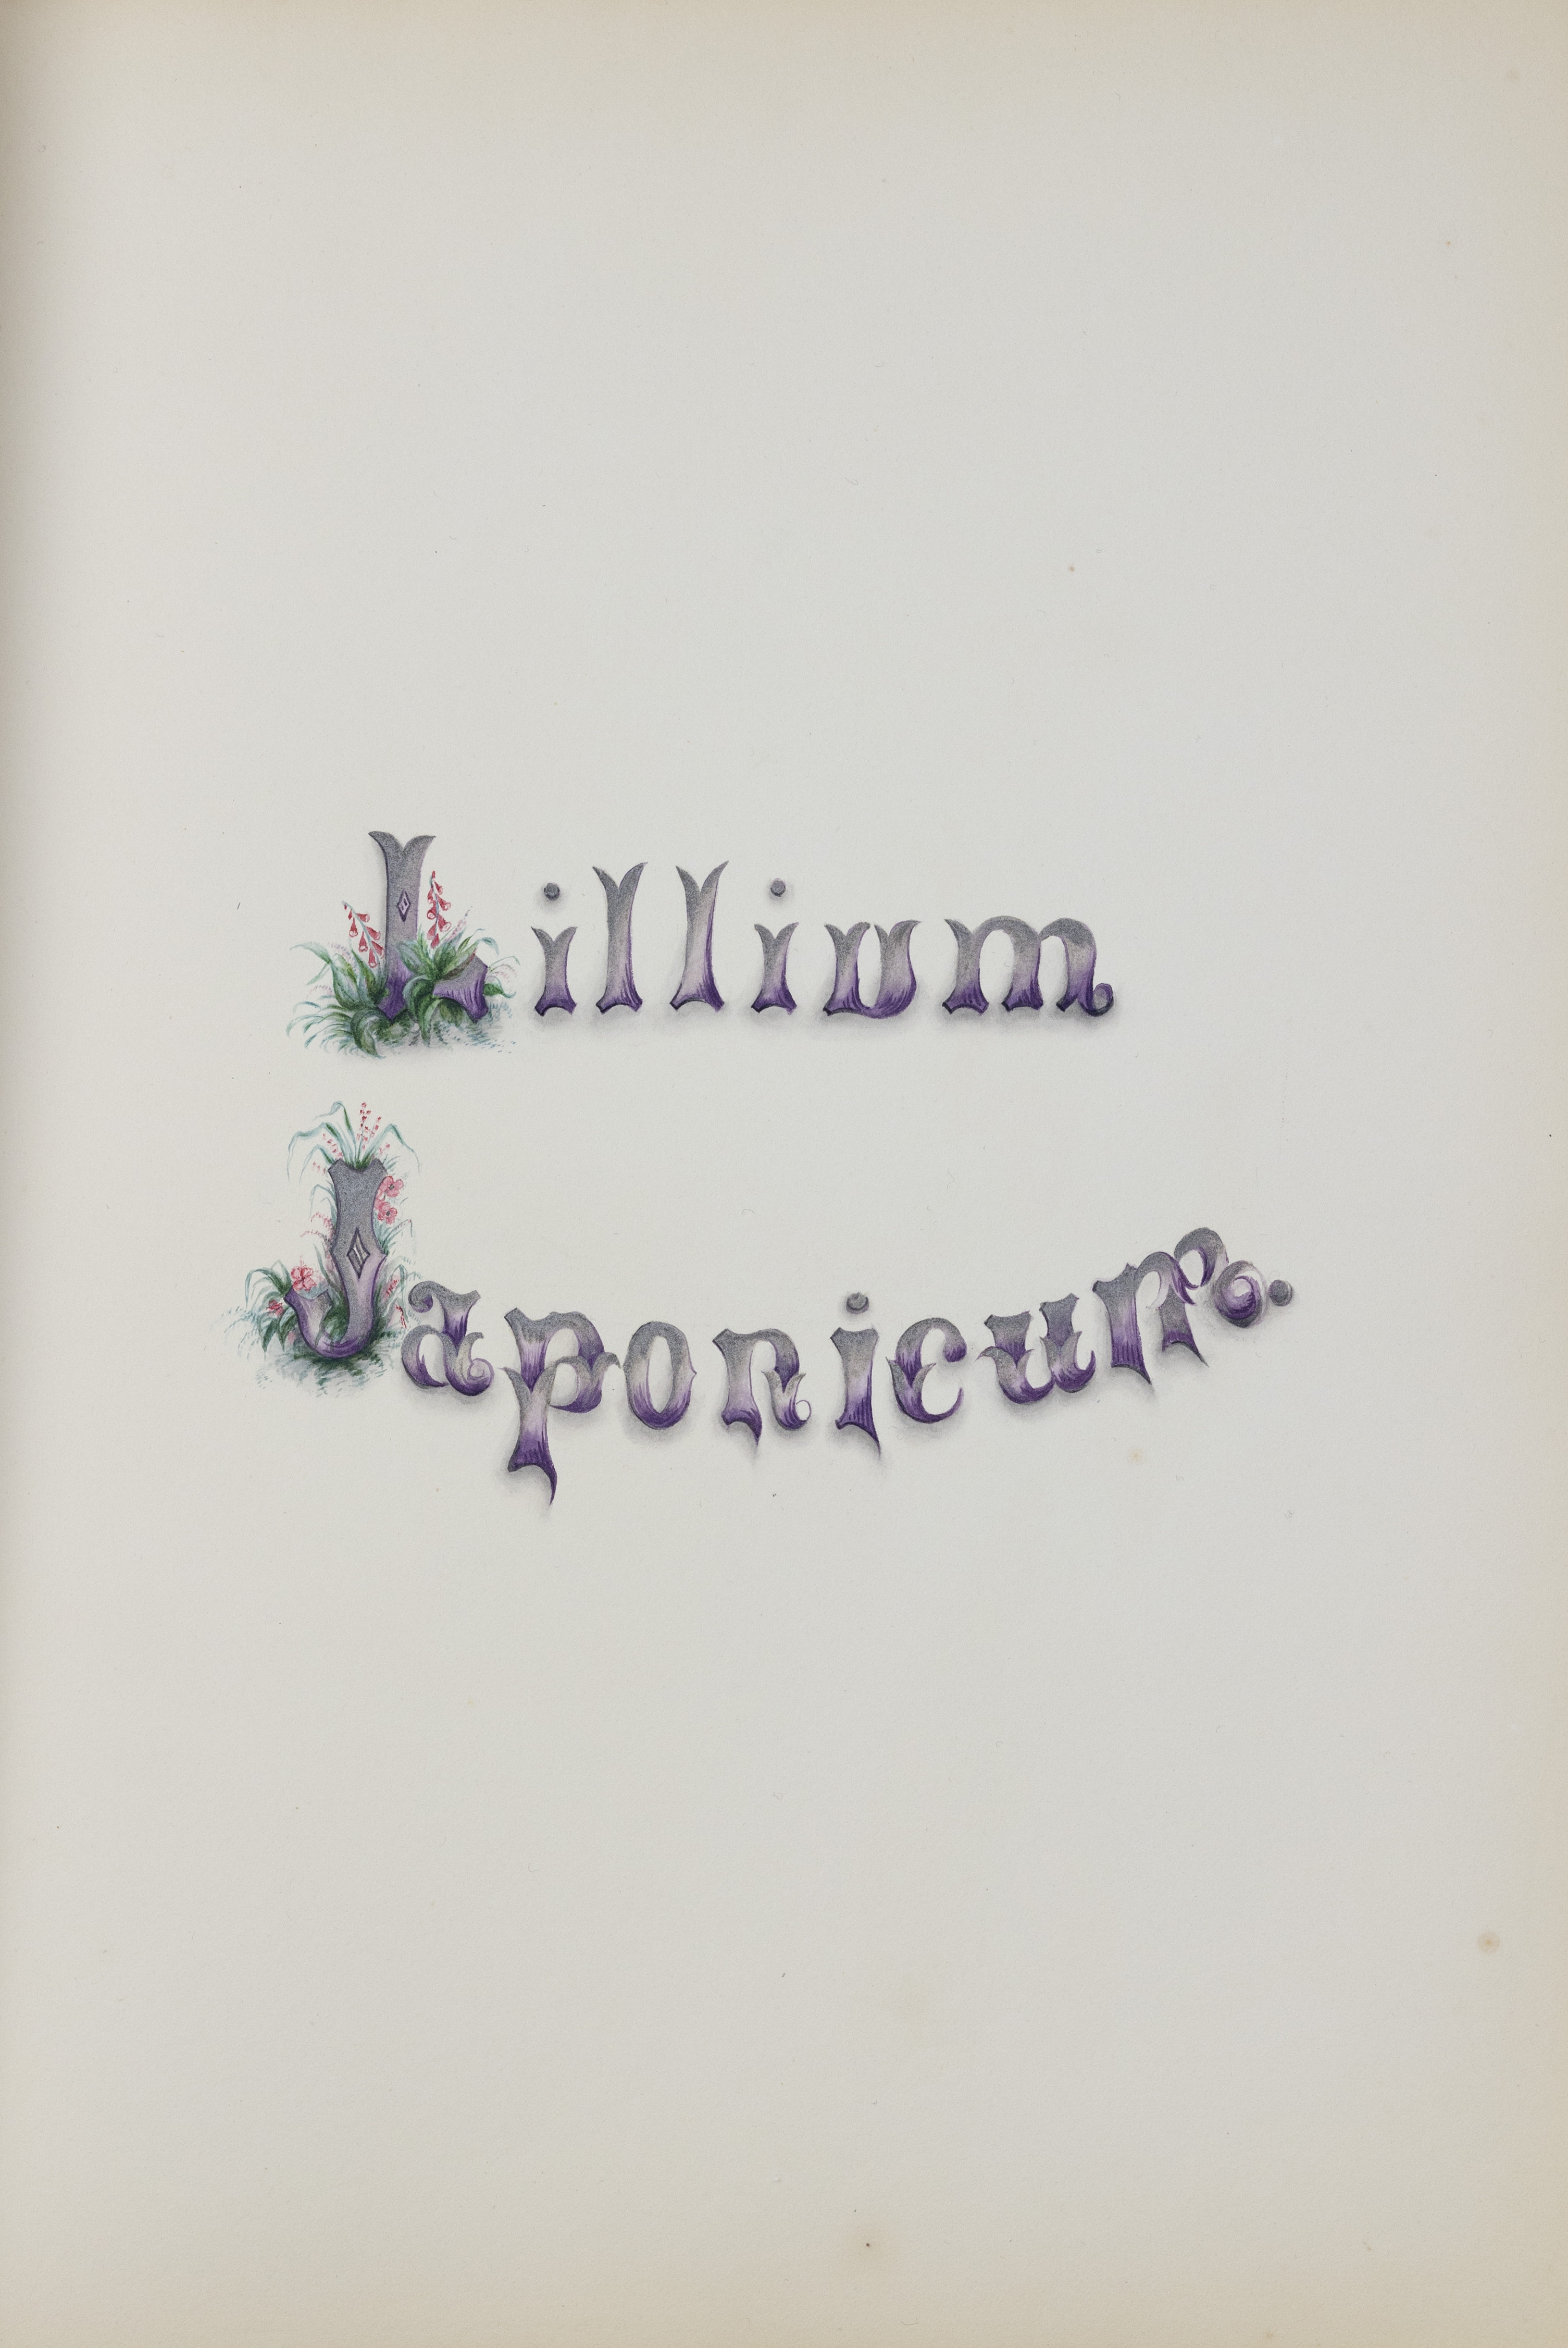 Lillium
Japonicum.